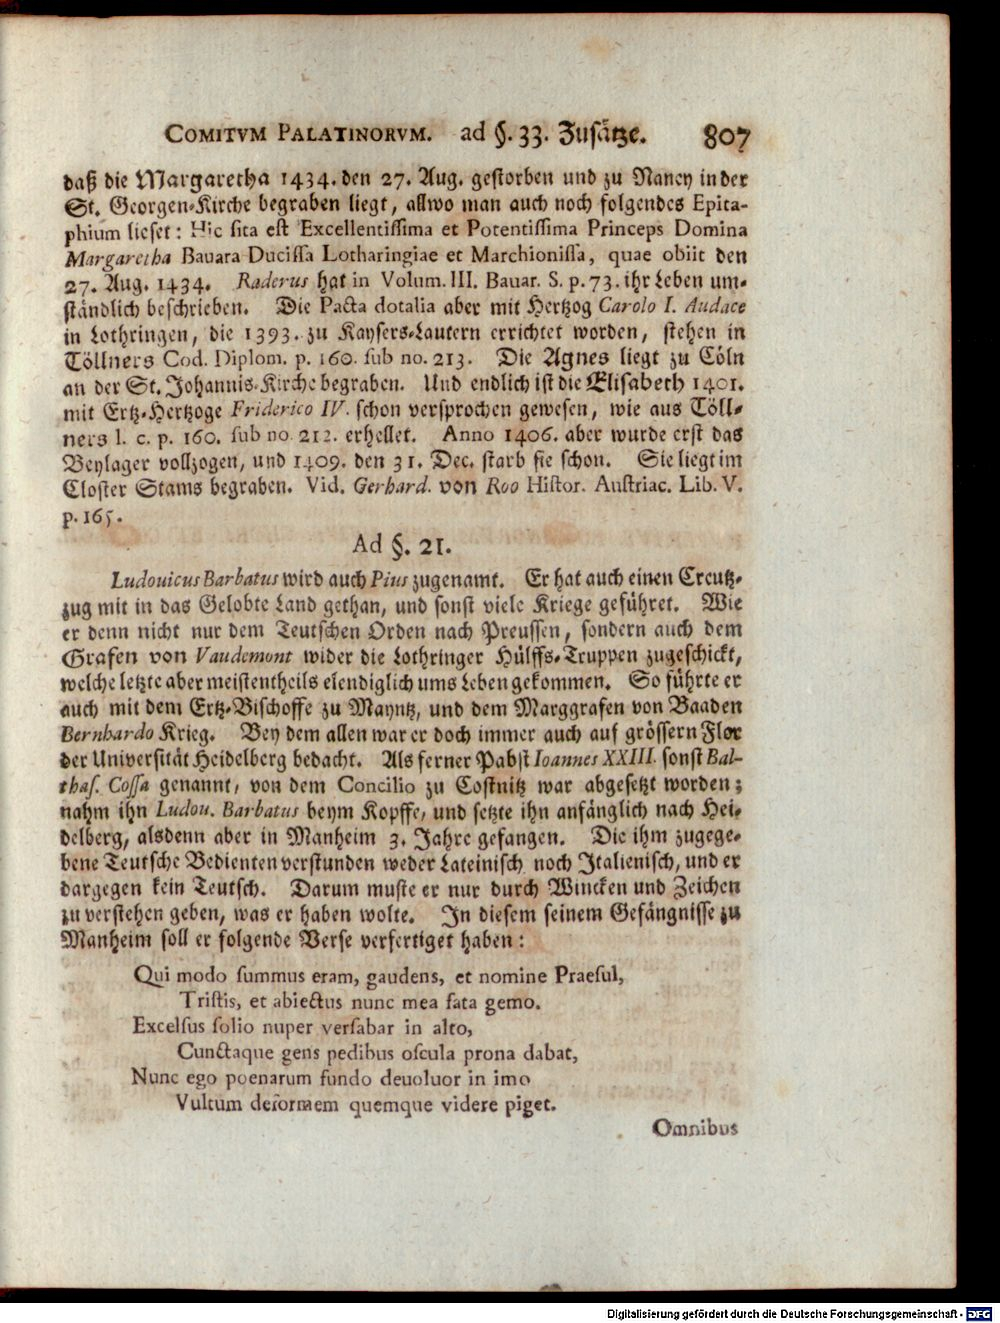 COMITVM PALATINORVM. ad §. 33. Zusätze. 807
daß die Margaretha 1434. den 27. Aug. gestorben und zu Nancy in der
St. Georgen-Kirche begraben liegt, allwo man auch noch folgendes Epita-
phium lieset: Hic sita est Excellentissima et Potentissima Princeps Domina
Margaretha Bauara Ducissa Lotharingiae et Marchionissa, quae obiit den
27. Aug. 1434. Raderus hat in Volum. III. Bavar. S. p. 73. ihr Leben um-
ständlich beschrieben. Die Pacta dotalia aber mit Hertzog Carolo I. Audace
in Lothringen, die 1393. zu Kaysers-Lautern errichtet worden, stehen in
Töllners Cod. Diplom. p. 160. sub no. 213. Die Agnes liegt zu Cöln
an der St. Johannis-Kirche begraben. Und endlich ist die Elisabeth 1401.
mit Ertz-Hertzoge Friderico IV. schon versprochen gewesen, wie aus Töll-
ners l. c. p. 160. sub no. 212. erhellet. Anno 1406. aber wurde erst das
Beylager vollzogen, und 1409. den 31. Dec. starb sie schon. Sie liegt im
Closter Stams begraben. Vid. Gerhard. von Roo Histor. Austriac. Lib. V.
p. 165.
Ad §. 21.
Ludouicus Barbatus wird auch Pius zugenamt. Er hat auch einen Creutz-
zug mit in das Gelobte Land gethan, und sonst viele Kriege geführet. Wie
er denn nicht nur dem Teutschen Orden nach Preussen, sondern auch dem
Grafen von Vaudemont wider die Lothringer Hülffs-Truppen zugeschickt,
welche letzte aber meistentheils elendiglich ums Leben gekommen. So führte er
auch mit dem Ertz-Bischoffe zu Mayntz, und dem Marggrafen von Baaden
Bernhardo Krieg. Bey dem allen war er doch immer auch auf grössern Flor
der Universität Heidelberg bedacht. Als ferner Pabst Ioannes XXIII. sonst Bal-
thas. Cossa genannt, von dem Concilio zu Costnitz war abgesetzt worden;
nahm ihn Ludou. Barbatus beym Kopffe, und setzte ihn anfänglich nach Hei-
delberg, alsdenn aber in Manheim 3. Jahre gefangen. Die ihm zugege-
bene Teutsche Bedienten verstunden weder Lateinisch noch Italienisch, und er
dargegen kein Teutsch. Darum muste er nur durch Wincken und Zeichen
zu verstehen geben, was er haben wolte. In diesem seinem Gefängnisse zu
Manheim soll er folgende Verse verfertiget haben:
Qui modo summus eram, gaudens, et nomine Praesul,
Tristis, et abiectus nunc mea fata gemo.
Excelsus solio nuper versabar in alto,
Cunctaque gens pedibus oscula prona dabat,
Nunc ego poenarum fundo deuoluor in imo
Vultum deformem quemque videre piget.
Omnibus
Digitalisierung gefördert durch die Deutsche Forschungsgemeinschaft - DFG